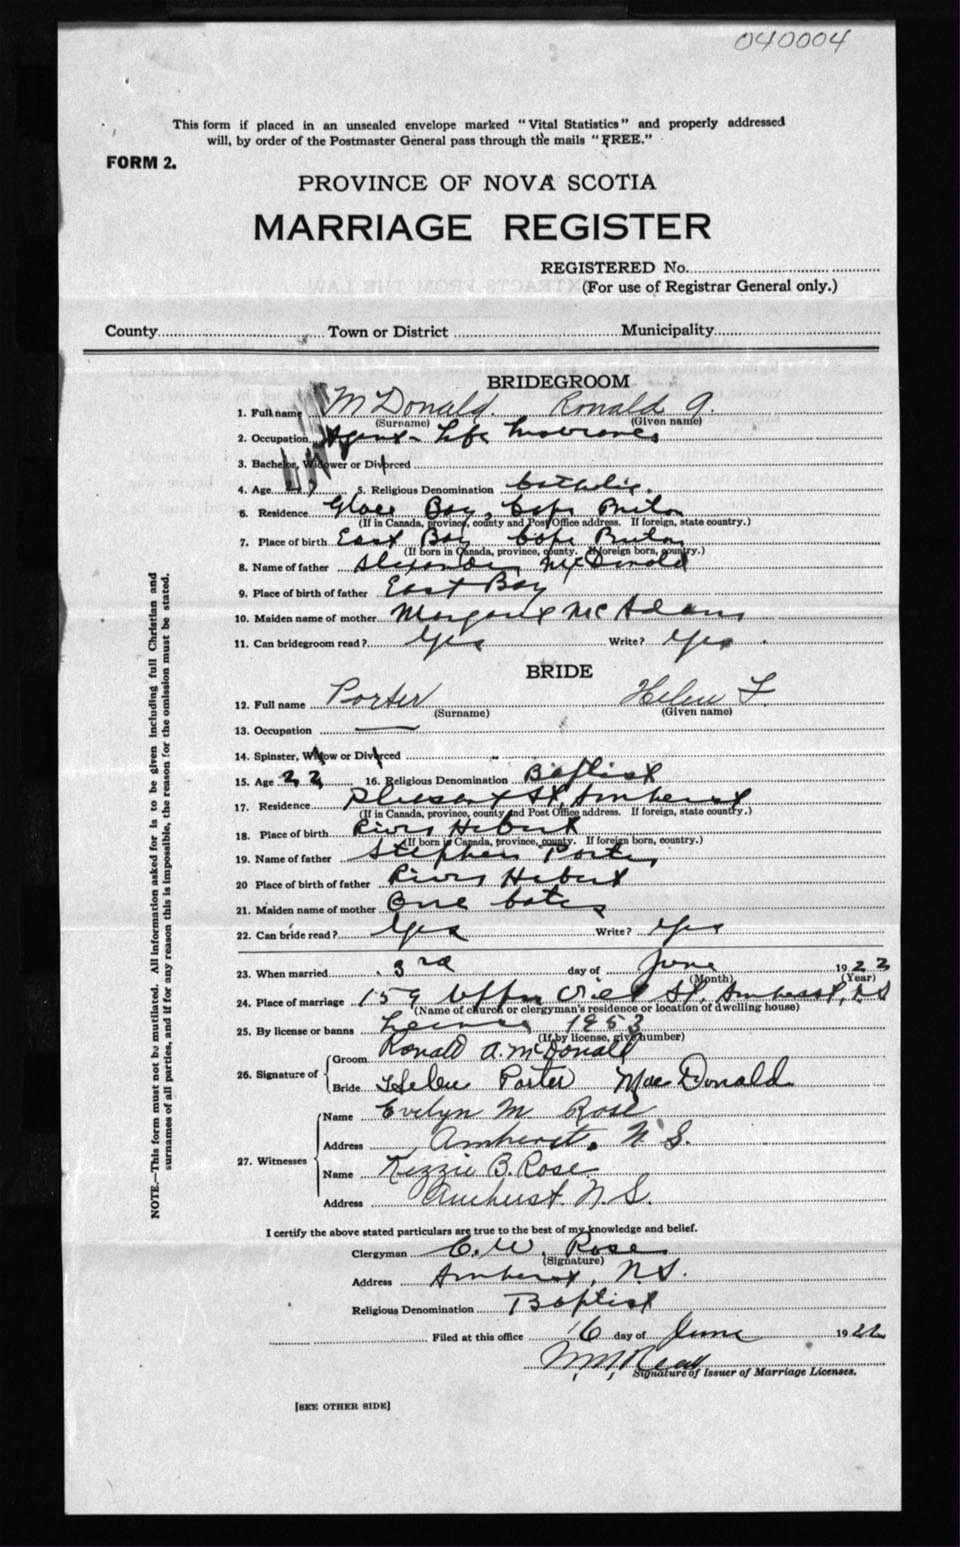 040004
This form if placed in an unsealed envelope marked "Vital Statistics" and properly addressed
will, by order of the Postmaster General pass through the mails "FREE."
FORM 2.
PROVINCE OF NOVA SCOTIA
MARRIAGE REGISTER
REGISTERED No.
(For use of Registrar General only.)
County Town or District Municipality
BRIDEGROOM
1. Full name McDonald Ronald A.
(Surname) (Given name)
2. Occupation Agent - Life Insurance
3. Bachelor, Widower or Divorced
4. Age 5. Religious Denomination Catholic.
6. Residence Glace Bay, Cape Breton
(If in Canada, province, county and Post Office address. If foreign, state country.)
7. Place of birth East Bay Cape Breton
(If born in Canada, province, county. If foreign born, country.)
8. Name of father Alexander McDonald
9. Place of birth of father East Bay
10. Maiden name of mother Margaret McAdam
11. Can bridegroom read? Yes Write? Yes.
BRIDE
12. Full name Porter Helen F.
(Surname) (Given name)
13. Occupation —
14. Spinster, Widow or Divorced
15. Age 22 16. Religious Denomination Baptist
17. Residence Pleasant St, Amherst
(If in Canada, province, county and Post Office address. If foreign, state country.)
18. Place of birth River Hebert
(If born in Canada, province, county. If foreign born, country.)
19. Name of father Stephen Porter
20 Place of birth of father River Hebert
21. Maiden name of mother
22. Can bride read? Yes Write? Yes
23. When married 3rd day of June 1922
(Month) (Year)
24. Place of marriage 159 Upper Vict St, Amherst, NS
(Name of church or clergyman's residence or location of dwelling house)
25. By license or banns License 1953
(If by license, give number)
26. Signature of Groom Ronald A. McDonald
Bride Helen Porter MacDonald
27. Witnesses Name Evelyn M Rose
Address Amherst, N.S.
Name Kezzie B. Rose
Address Amherst. N.S.
I certify the above stated particulars are true to the best of my knowledge and belief.
Clergyman C. W. Rose
(Signature)
Address Amherst, N.S.
Religious Denomination Baptist
Filed at this office 16 day of June 1922
Signature of Issuer of Marriage Licenses.
[SEE OTHER SIDE]
NOTE.—This form must not be mutilated. All information asked for is to be given including full Christian and
surnames of all parties, and if for any reason this is impossible, the reason for the omission must be stated.